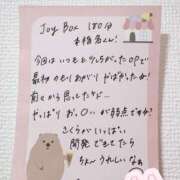 Joy Box 180分
本指名くん!
今回はいつもとちがったOPで
最初のもりあがり やばかったか!
前々から思ってたけど…
やっぱり お。〇いが弱点ですか?
さくらがいっぱい。
開発できてたら
ちょ〜うれしいなぁ